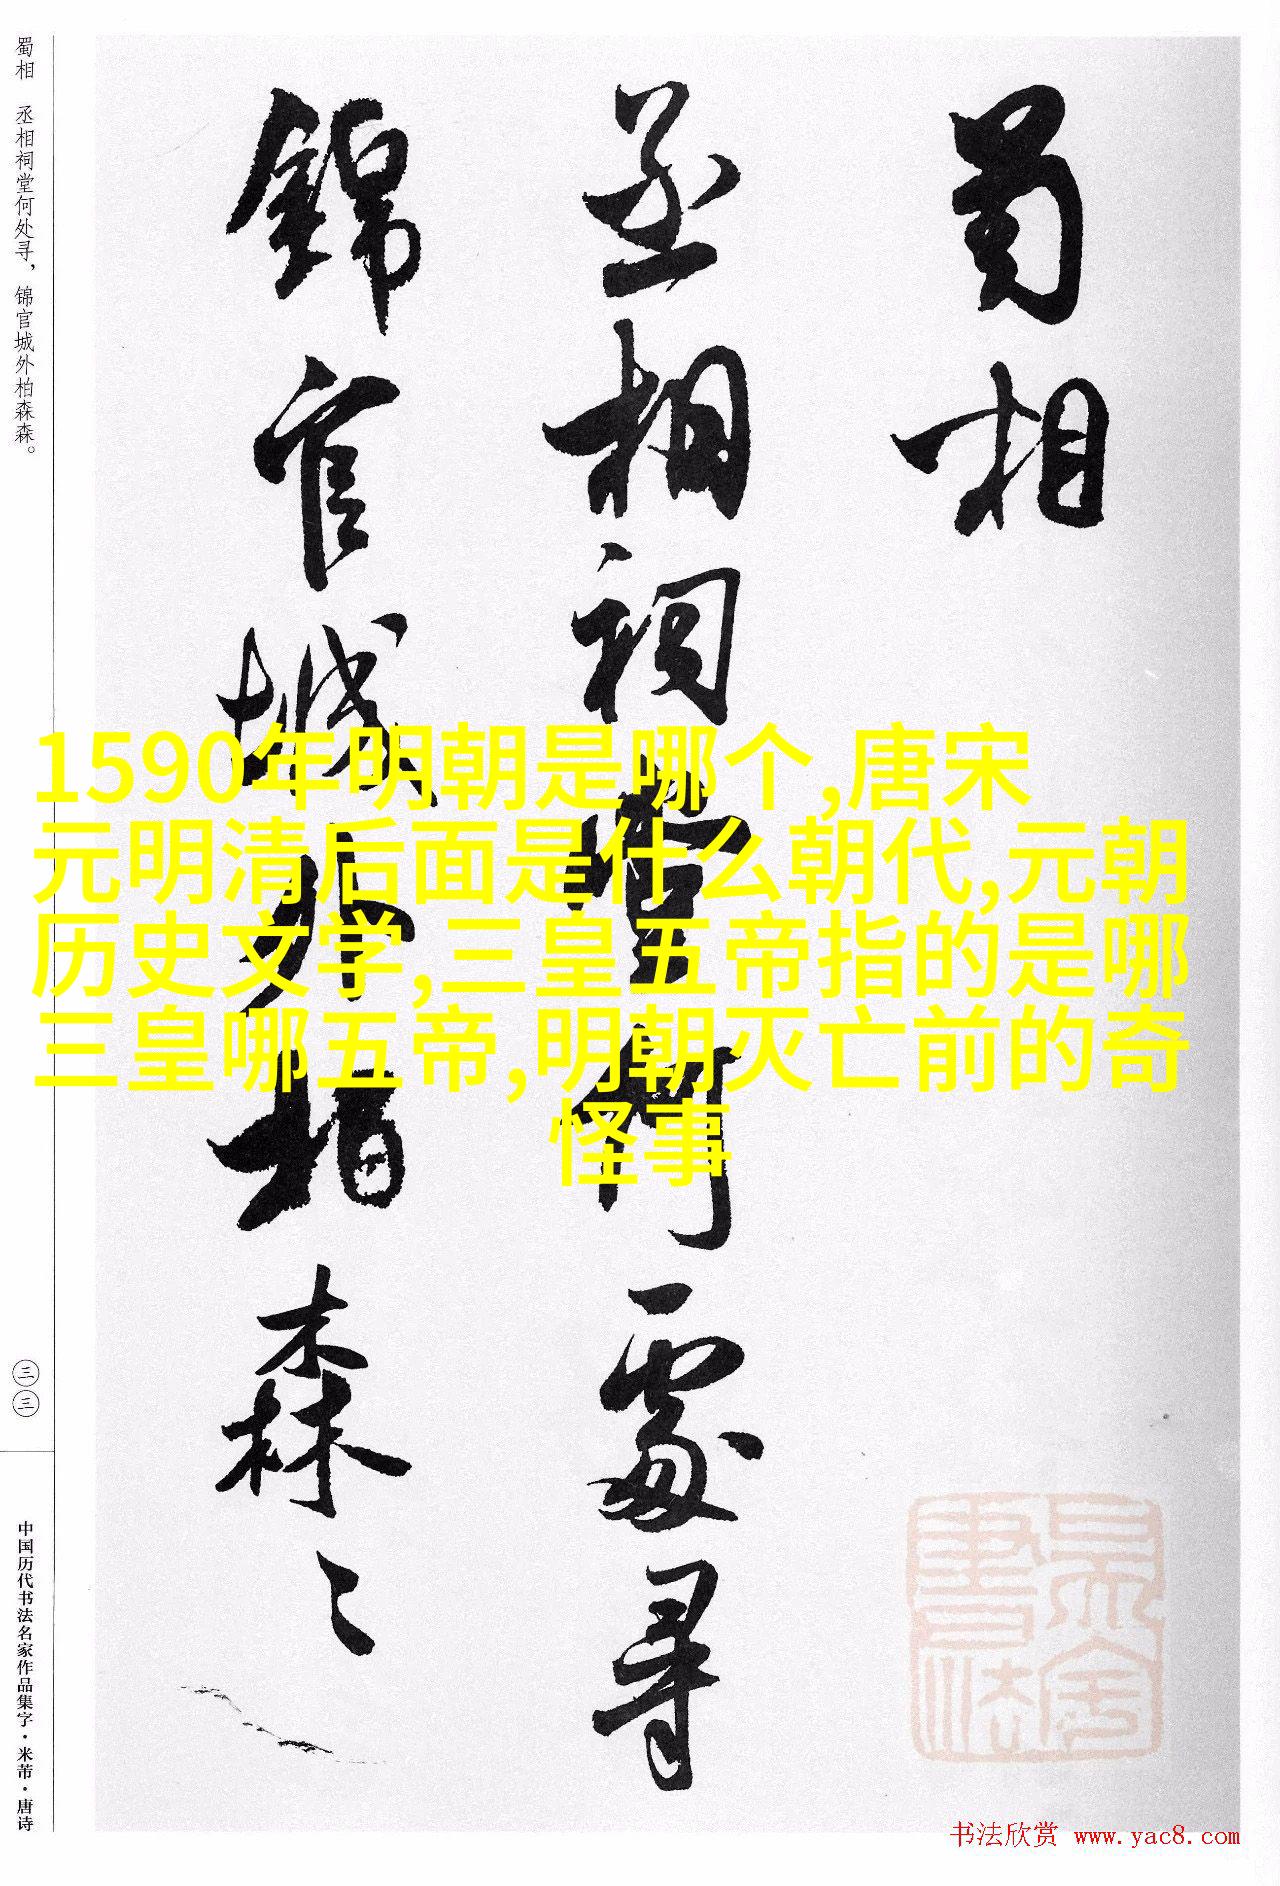 蜀相
丞相祠堂何處尋
錦官城外柏森〻
蜀相　丞相祠堂何处寻，锦官城外柏森森。
三三
中国历代书法名家作品集字·米芾·唐诗
1590年明朝是哪个,唐宋
元明清后面是什么朝代,元朝
历史文学,三皇五帝指的是哪
三皇哪五帝,明朝灭亡前的奇
怪事
书法欣赏 www.yac8.com